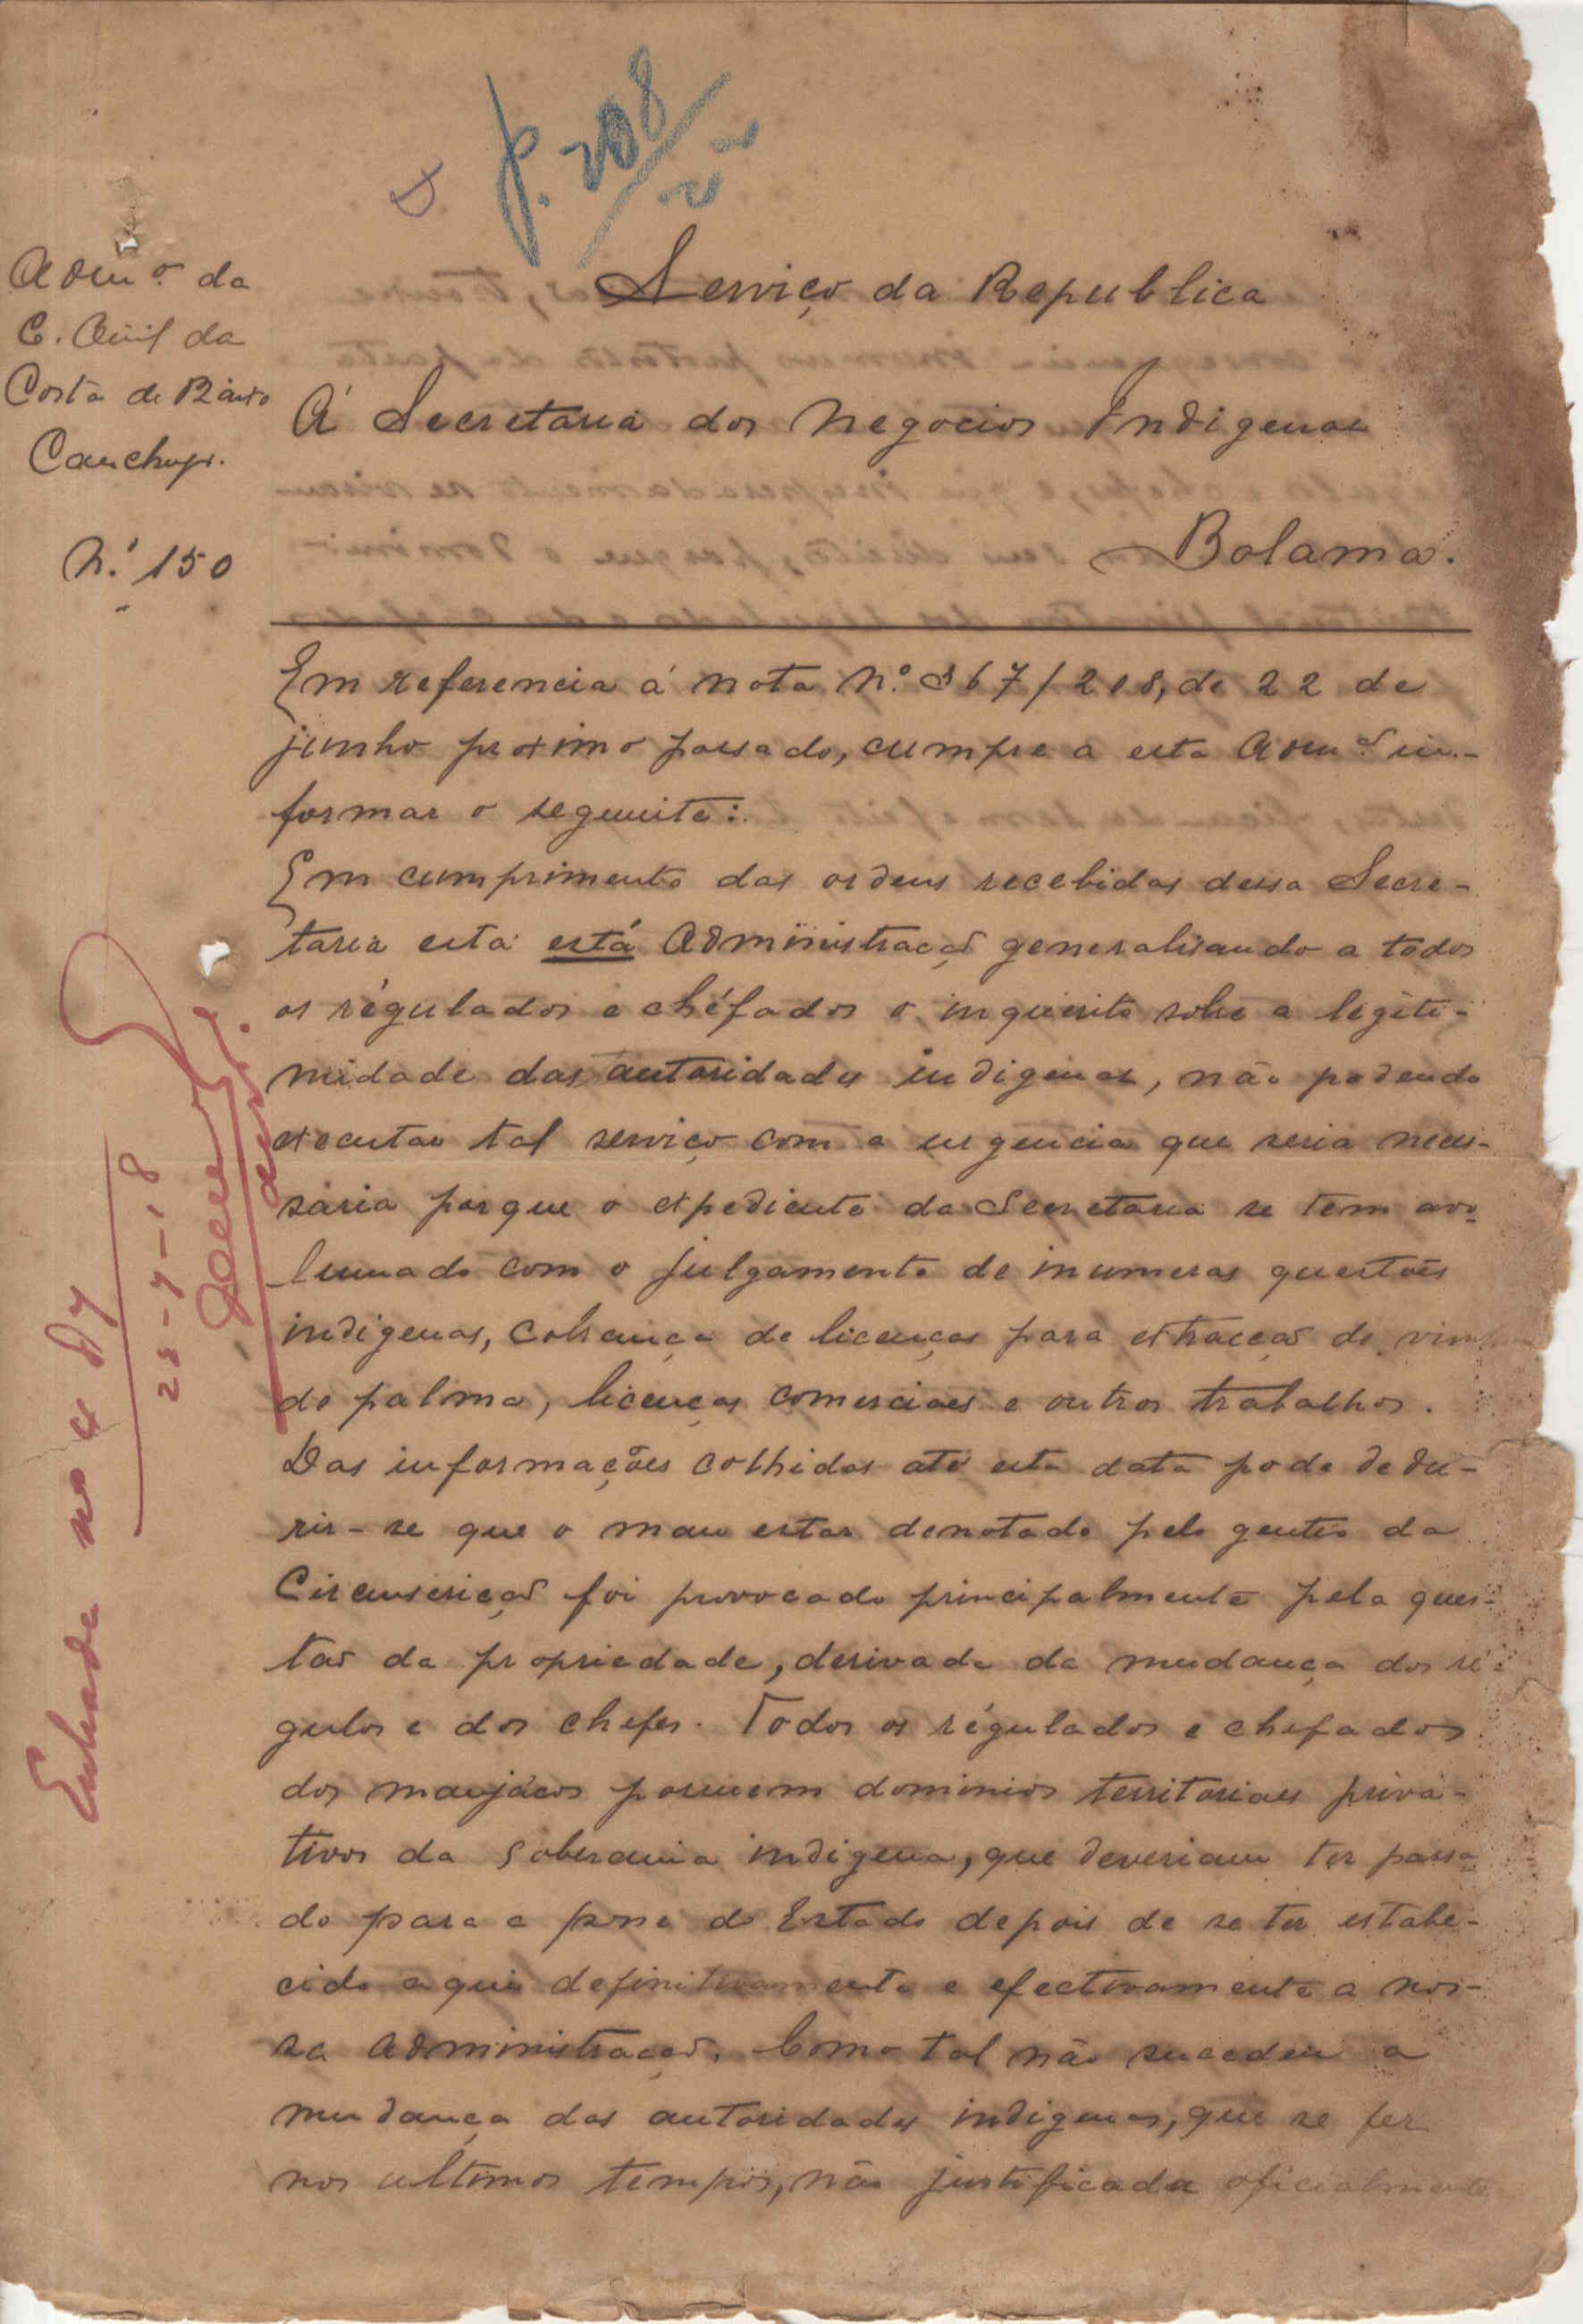 P. 208/22
Adm.º da
C. Civil da
Costa de Baixo
Canchungo.
N.º 150
Serviço da Republica
Á Secretaria dos Negocios Indigenas
Bolama.
Em referencia á nota N.º 367/208, de 22 de
junho proximo passado, cumpre a esta Adm.ão in-
formar o seguinte:
Em cumprimento das ordens recebidas dessa Secre-
taria esta está Administracção generalisando a todos
os régulados e chéfados o inquerito sobre a legiti-
midade das autoridades indigenas, não podendo
executar tal serviço com a urgencia que seria neces-
sária porque o expediente da Secretaria se tem avo-
lumado com o julgamento de inumeras questões
indigenas, cobrança de licenças para extracção de vinho
de palma, licenças comerciaes e outros trabalhos.
Das informações colhidas até esta data pode dedu-
zir-se que o mau estar denotado pelo gentio da
Circunscrição foi provocado principalmente pela ques-
tão da propriedade, derivada da mudança dos ré-
gulos e dos chefes. Todos os régulados e chefados
dos manjácos possuem dominios territoriaes priva-
tivos da soberania indigena, que deveriam ter passa-
do para a posse do Estado depois de se ter estabe-
cido aqui definitivamente e efectivamente a nos-
sa administração. Como tal não sucedeu a
mudança das autoridades indigenas, que se fez
nos ultimos tempos, não justificada oficialmente
Entrada no